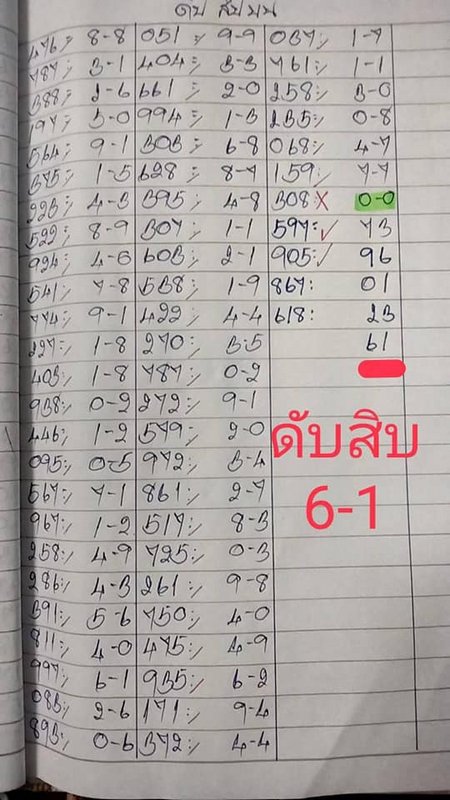 ดับ สิบ บน
476:, 8-8 051 :, 9-9 037:, 1-7
787:, 3-1 404 :, 3-3 761:, 1-1
388:, 2-6 661 :, 2-0 258:, 3-0
197:, 5-0 994 :, 1-3 235:, 0-8
564:, 9-1 303 :, 6-8 068:, 4-7
375:, 1-5 628 :, 8-7 159:, 7-7
223:, 4-3 395 :, 4-8 308:✗ 0-0
522:, 8-9 307 :, 1-1 597:✓ 73
924:, 4-6 603 :, 2-1 905:✓ 96
541:, 7-8 538 :, 1-9 867: 01
774:, 9-1 422 :, 4-4 618: 23
227:, 1-8 270 :, 3-5 61
403:, 1-8 787:, 0-2
938:, 0-2 272:, 9-1
446:, 1-2 579:, 2-0
095:, 0-5 972:, 3-4
567:, 7-1 861:, 2-7
967:, 1-2 517:, 8-3
258:, 4-9 725:, 0-3
286:, 4-3 261:, 9-8
391:, 5-6 750:, 4-0
811:, 4-0 475:, 4-9
997:, 6-1 935:, 6-2
083:, 2-6 171:, 9-4
893:, 0-6 372:, 4-4
ดับสิบ
6-1